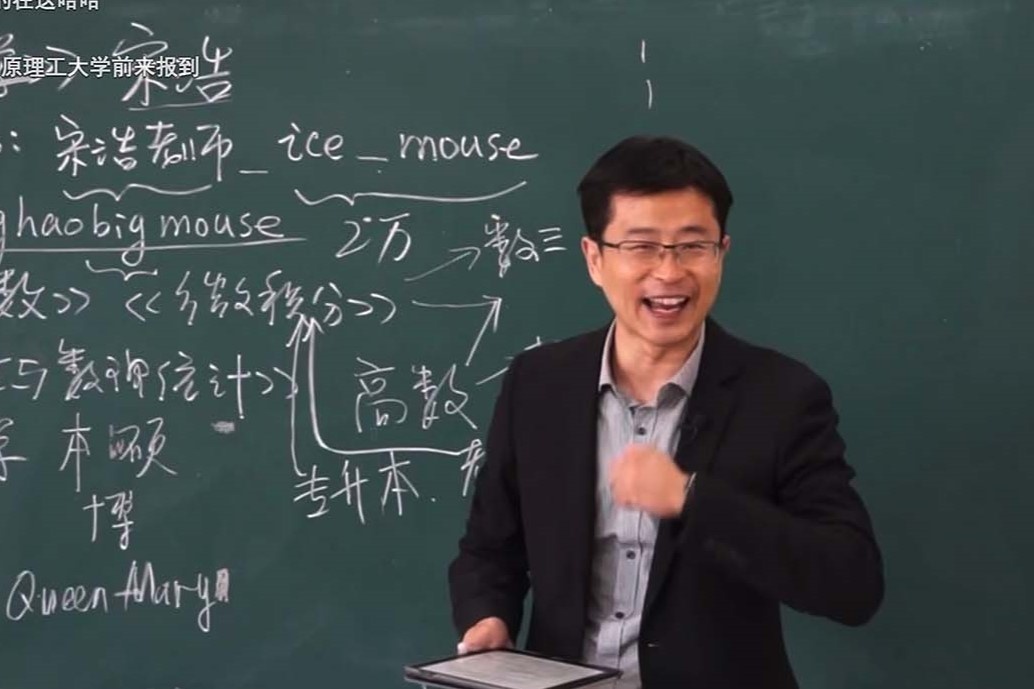 的在这哈哈
原理工大学前来报到
学>> 宋浩
: 宋浩老师_ice_mouse
ghaobigmouse 2万 数三
数>> <<微积分>>
与数理统计>> 高数
学 本硕
专升本.
博
Queen Mary